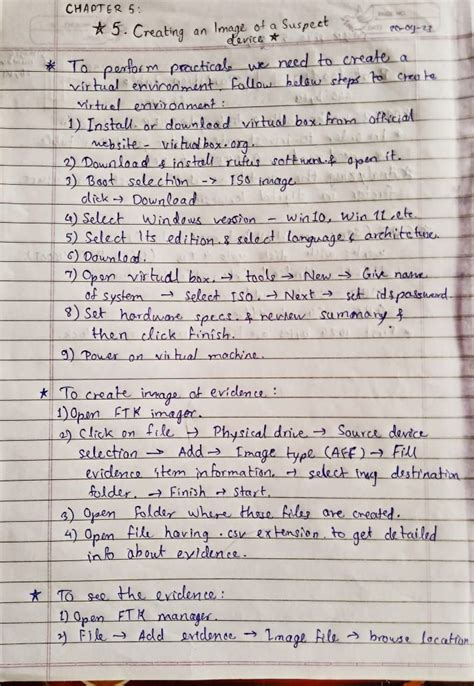 CHAPTER 5:
★ 5. Creating an Image of a Suspect
device ★
★ To perform practicals we need to create a
virtual environment. Follow below steps to create
virtual environment:
1) Install or download virtual box from official
website - virtualbox.org.
2) Download & install rufus software & open it.
3) Boot selection -> ISO image
click → Download
4) Select Windows version - Win10, Win 11, etc.
5) Select Its edition. & select language & architeture.
6) Download.
7) Open virtual box. → tools → New → Give name
of system → select ISO. → Next → set id & password.
8) Set hardware specs. & review summary &
then click finish.
9) Power on virtual machine.
★ To create image of evidence:
1) Open FTK imager.
2) Click on file → Physical drive → Source device
selection → Add → Image type (AFF) → Fill
evidence item information. → select img destination
folder. → Finish → Start.
3) Open Folder where these files are created.
4) Open file having .csv extension to get detailed
info about evidence.
★ To see the evidence:
1) Open FTK manager.
2) File → Add evidence → Image file → browse location